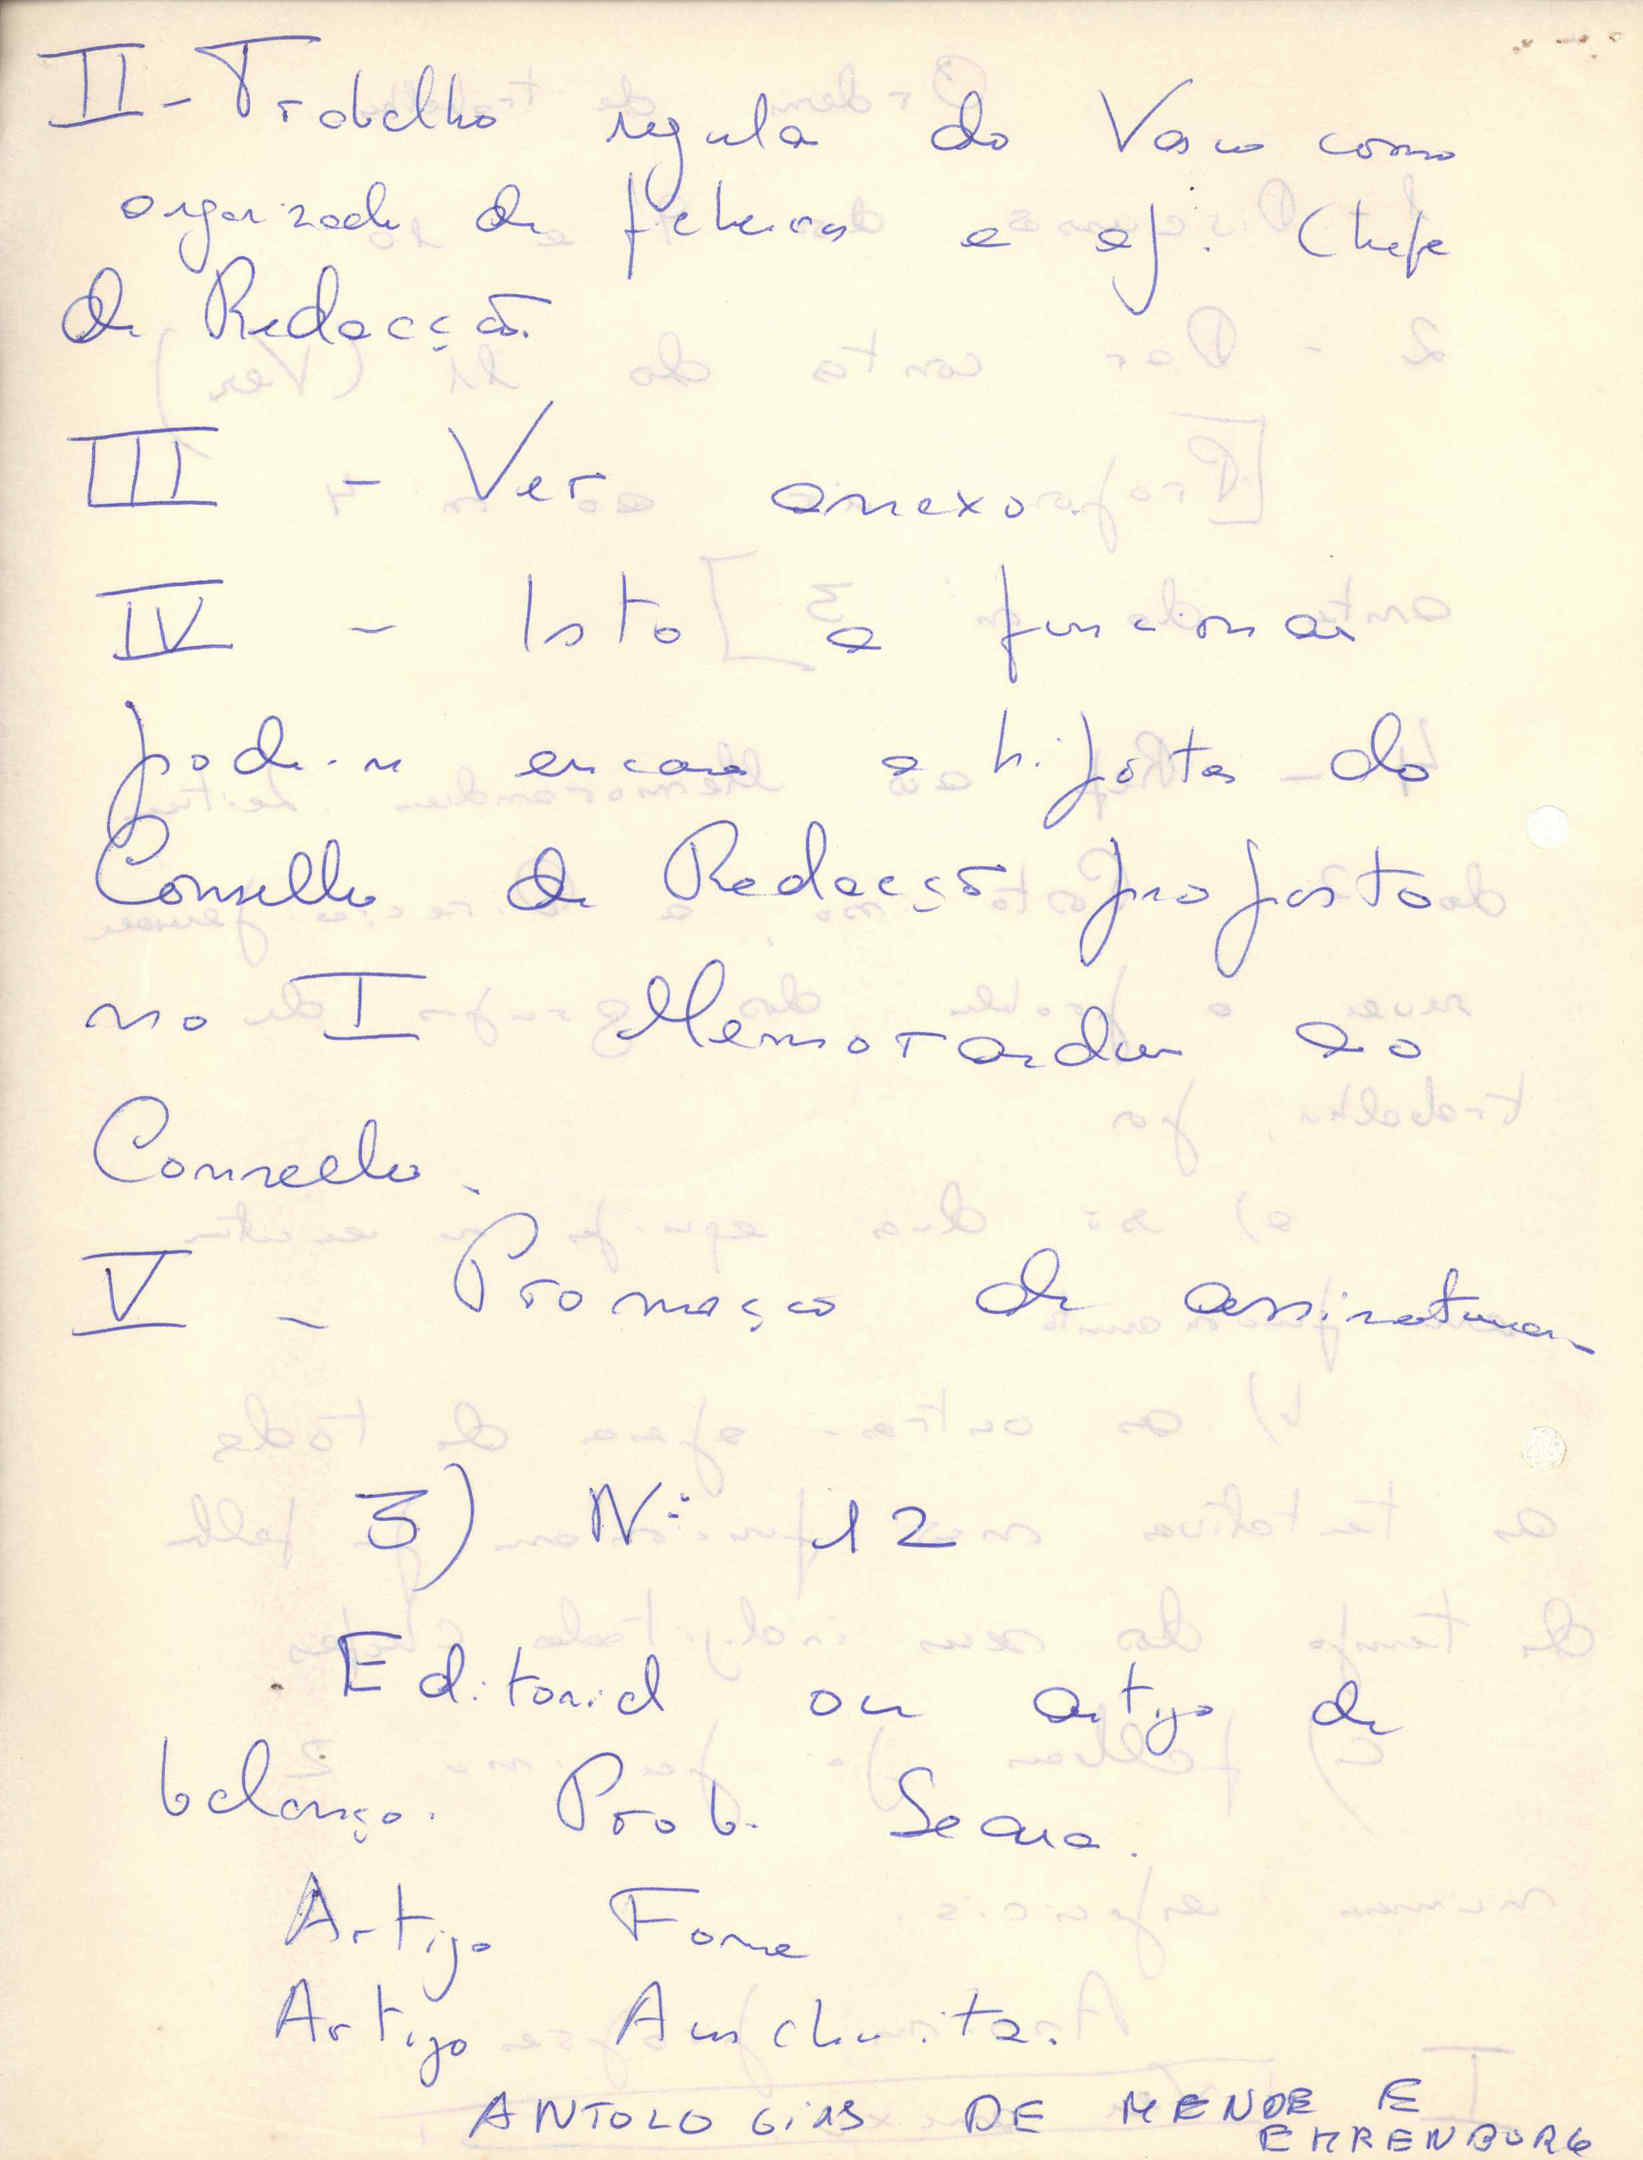 II - Trabalho regular do Vasco como
organizador de ficheiros e aj. Chefe
de Redacção.
III - Ver anexo.
IV - Isto a funcionar
poder-se encarar a hipótese do
Conselho de Redacção proposto
no I Memorandum ao
Conselho.
V - Promoção de assinaturas
3) Nº 12
Editorial ou artigo de
balanço. Prob. Seara.
Artigo Fome
Artigo Auschwitz.
ANTOLOGIAS DE MENDE E
EHRENBURG